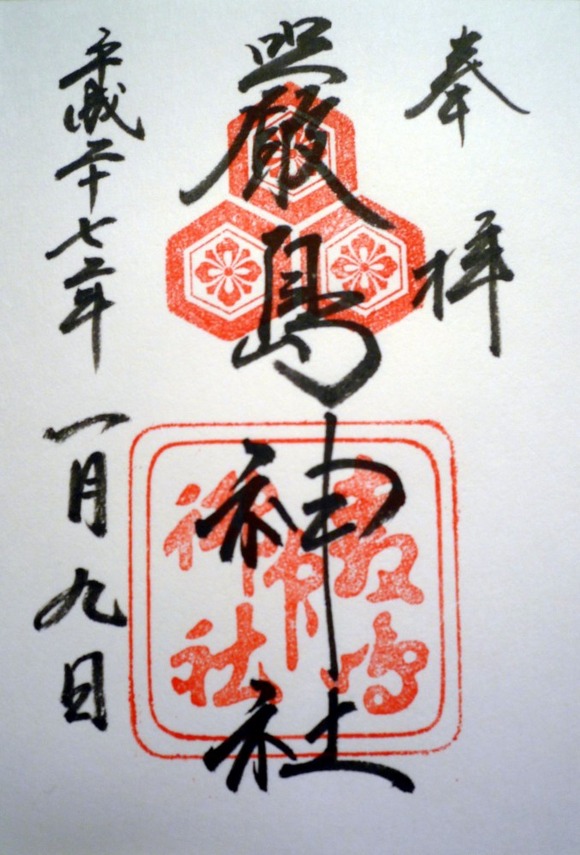 奉拝
嚴島神社
平成二十七年
一月九日